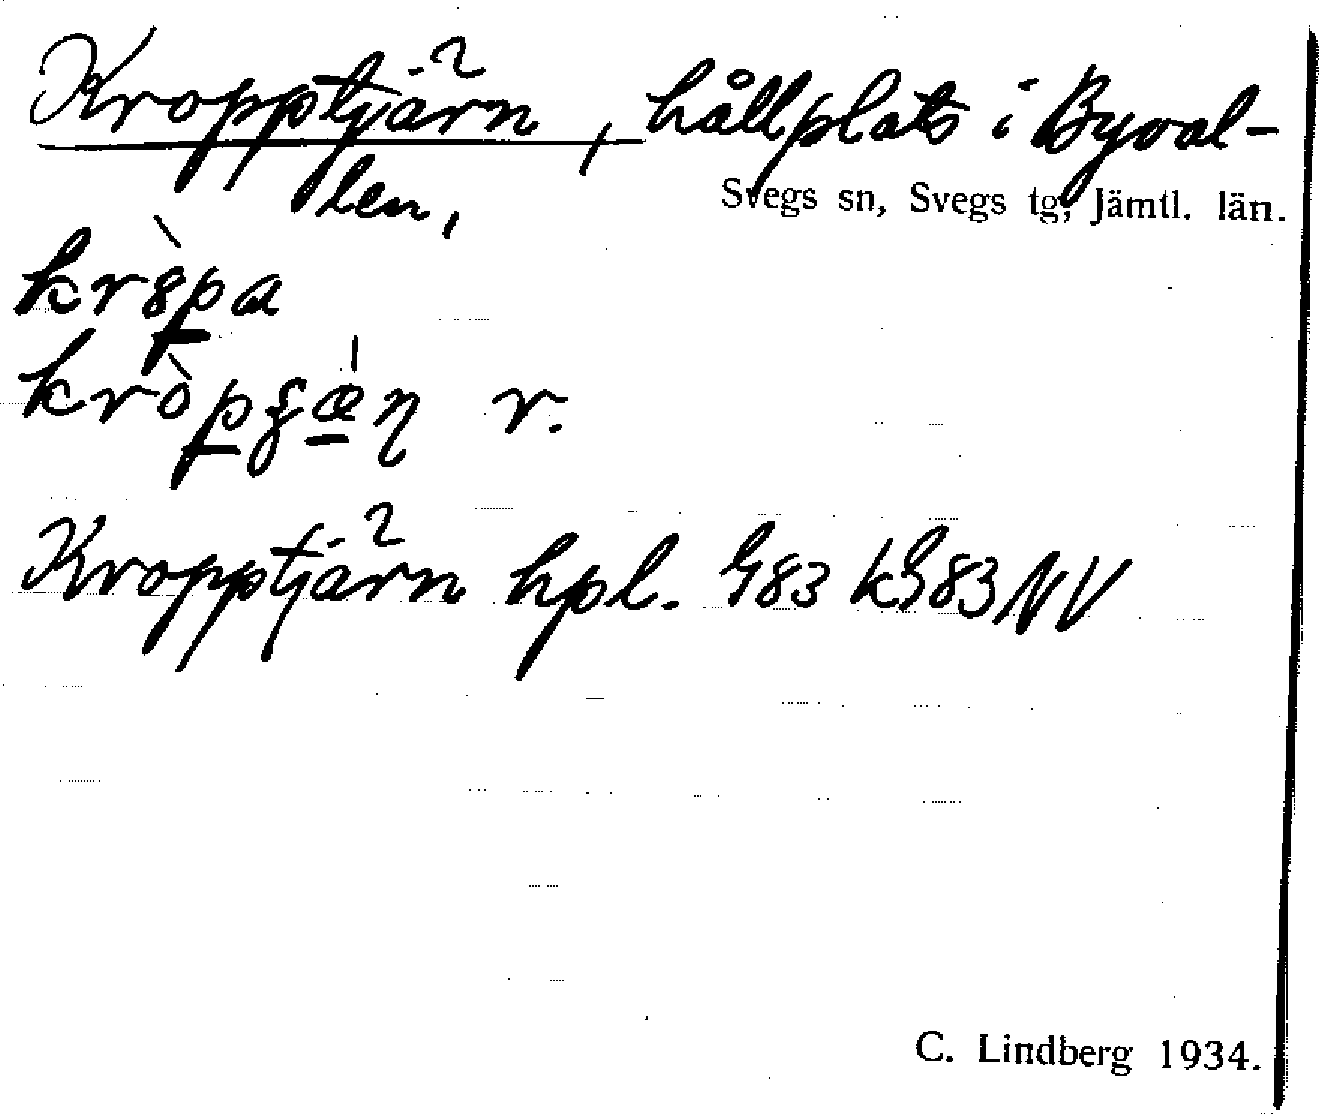 Kropptjärn, hållplats i Byval-
len,
Svegs sn, Svegs tg, Jämtl. län.
kròpa
kròpʒæ̀n r.
Kropptjärn hpl. G83 kG83NV
C. Lindberg 1934.